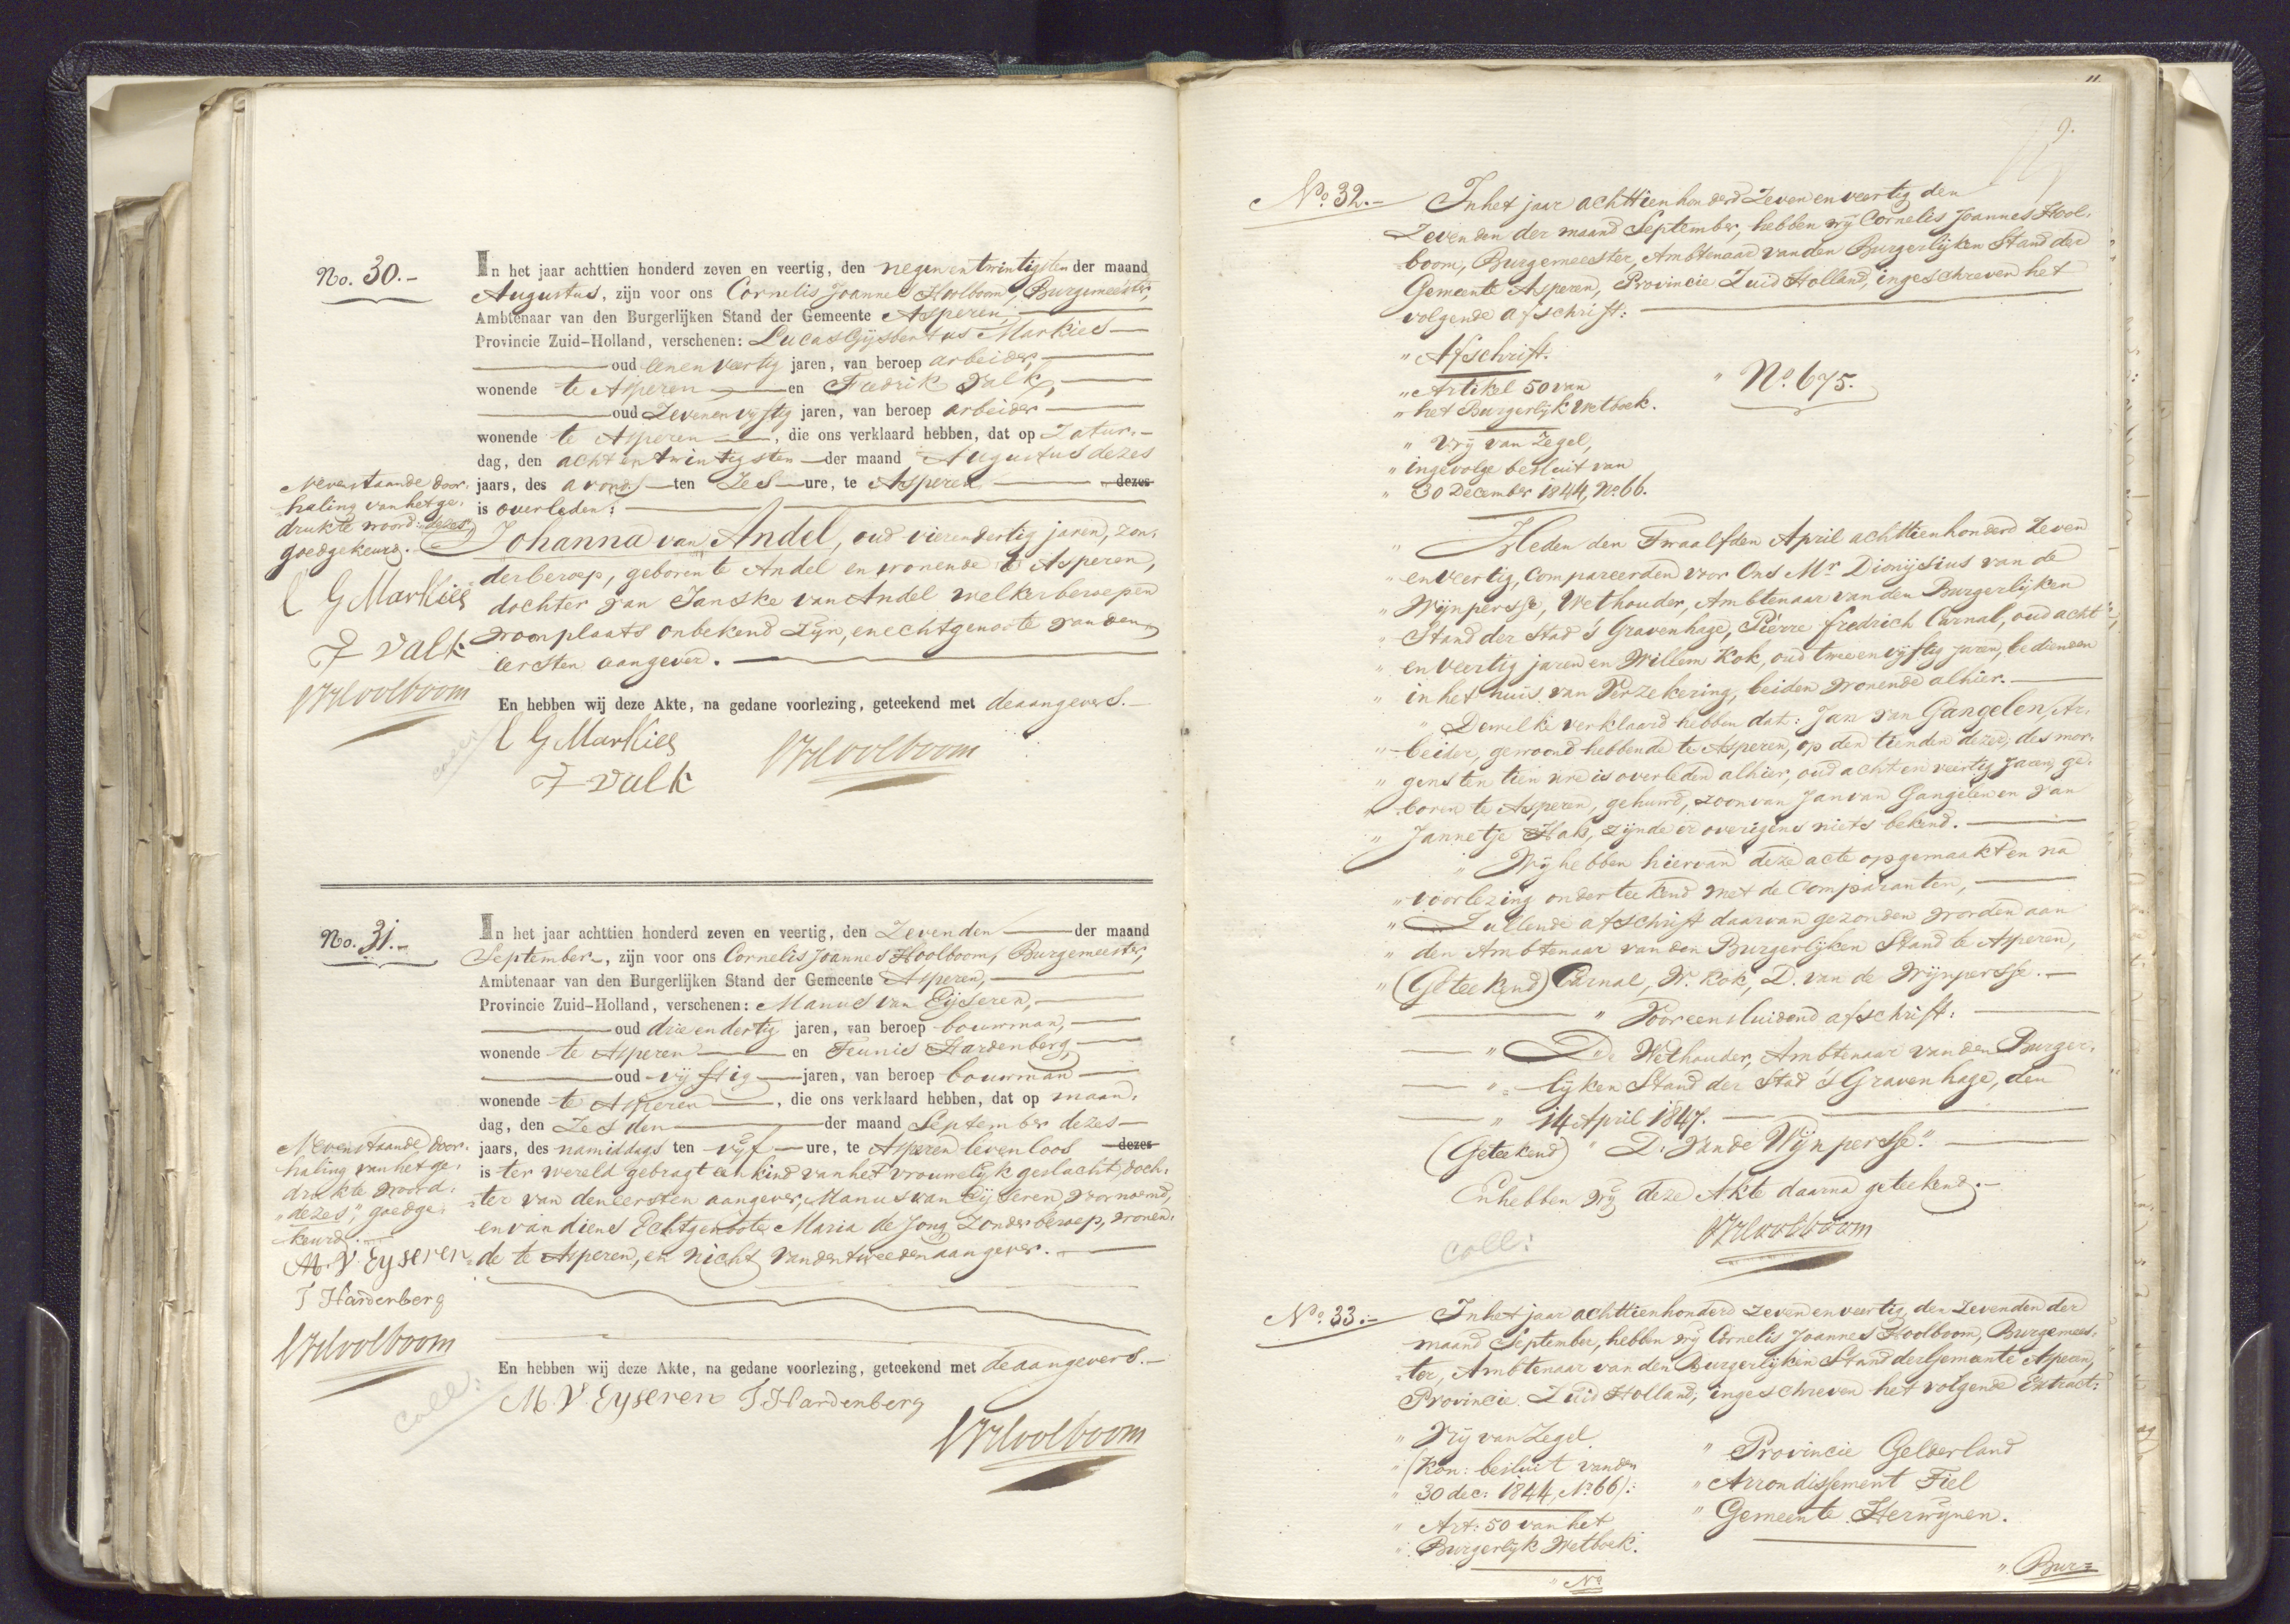 No. 30.-
In het jaar achttien honderd zeven en veertig, den negen en twintigsten der maand
Augustus, zijn voor ons Cornelis Joannes Hoolboom, Burgemeester,
Ambtenaar van den Burgerlijken Stand der Gemeente Asperen,
Provincie Zuid-Holland, verschenen: Lucas Gijsbertus Markies
oud eenenveertig jaren, van beroep arbeider,
wonende te Asperen en Fredrik Valk,
oud Zevenenvijftig jaren, van beroep arbeider
wonende te Asperen, die ons verklaard hebben, dat op Zatur-
dag, den achtentwintigsten der maand Augustus dezes
jaars, des avonds ten Zes ure, te Asperen dezes
is overleden:
Johanna van Andel, oud vierendertig jaren, zon-
derberoep, geboren te Andel en wonende te Asperen,
dochter van Janske van Andel welker beroep en
woonplaats onbekend zijn, en echtgenoote van den
eersten aangever.
En hebben wij deze Akte, na gedane voorlezing, geteekend met de aangevers.
L G Markies
F Valk
CJHoolboom
Nevenstaande door-
haling van het ge-
drukte woord: dezes
goedgekeurd.
L G Markies
F Valk
CJHoolboom
coll:
No. 31.-
In het jaar achttien honderd zeven en veertig, den Zevenden der maand
September, zijn voor ons Cornelis Joannes Hoolboom, Burgemeester,
Ambtenaar van den Burgerlijken Stand der Gemeente Asperen,
Provincie Zuid-Holland, verschenen: Manus van Eijseren,
oud drieendertig jaren, van beroep bouwman,
wonende te Asperen en Teunis Hardenberg,
oud vijftig jaren, van beroep bouwman
wonende te Asperen, die ons verklaard hebben, dat op maan-
dag, den Zesden der maand September dezes
jaars, des namiddags ten vijf ure, te Asperen levenloos dezes
is ter wereld gebragt een kind van het vrouwelijk geslacht, doch-
ter van den eersten aangever, Manus van Eijseren, voornoemd,
en van diens Echtgenoote Maria de Jong, Zonder beroep, wonen-
de te Asperen, en nicht van den tweeden aangever.
En hebben wij deze Akte, na gedane voorlezing, geteekend met de aangevers.
M. V. Eyseren T. Hardenberg
CJHoolboom
Nevenstaande door-
haling van het ge-
drukte woord:
"dezes", goedge-
keurd.
M. V. Eyseren
T Hardenberg
CJHoolboom
Coll:
11.
9.
No. 32.-
In het jaar achttienhonderd Zeven en veertig den
Zevenden der maand September, hebben wij Cornelis Joannes Hool-
boom, Burgemeester, Ambtenaar van den Burgerlijken Stand der
Gemeente Asperen, Provincie Zuid Holland, ingeschreven het
volgende afschrift:
" Afschrift.
" Artikel 50 van
" het Burgerlijk Wetboek.
" No. 675.
" Vrij van Zegel,
" ingevolge besluit van
" 30 December 1844, No. 66.
" Heden den Twaalfden April achttienhonderd Zeven
" en veertig, Compareerden voor Ons Mr. Dionijsius van de
" Wijnpersse, Wethouder, Ambtenaar van den Burgerlijken
" Stand der Stad 's Gravenhage, Pierre Fredrich Carnal, oud acht
" en veertig jaren en Willem Kok, oud tweeenvijftig jaren, bedienden
" in het huis van Verzekering, beiden wonende alhier.
" Dewelke verklaard hebben dat: Jan van Gangelen, Ar-
" beider, gewoond hebbende te Asperen, op den tienden dezer, des mor-
" gens ten tien ure is overleden alhier, oud acht en veertig jaren, ge-
" boren te Asperen, gehuwd, zoon van Jan van Gangelen en van
" Jannetje Hak, zijnde er overigens niets bekend.
" Wij hebben hiervan deze acte opgemaakt en na
" voorlezing onderteekend met de Comparanten,
" Zullende afschrift daarvan gezonden worden aan
" den Ambtenaar van den Burgerlijken Stand te Asperen,
" (Geteekend) Carnal, W. Kok, D. van de Wijnpersse.
" Vooreensluidend afschrift:
" De Wethouder, Ambtenaar van den Burger-
" lijken Stand der Stad 's Gravenhage, den
" 14 April 1847.
(Geteekend) " D. Van de Wijnpersse."
En hebben wij deze Akte daarna geteekend.
CJHoolboom
Coll:
No. 33.-
In het jaar achttienhonderd zeven en veertig, den Zevenden der
maand September, hebben wij Cornelis Joannes Hoolboom, Burgemees-
ter, Ambtenaar van den Burgerlijken Stand der Gemeente Asperen,
Provincie Zuid Holland, ingeschreven het volgende Extract:
" Vrij van Zegel
" (Kon: besluit van den
" 30 dec: 1844, No. 66):
" Art: 50 van het
" Burgerlijk Wetboek.
" Provincie Gelderland
" Arrondissement Tiel
" Gemeente Herwijnen.
" No.
" Bur=